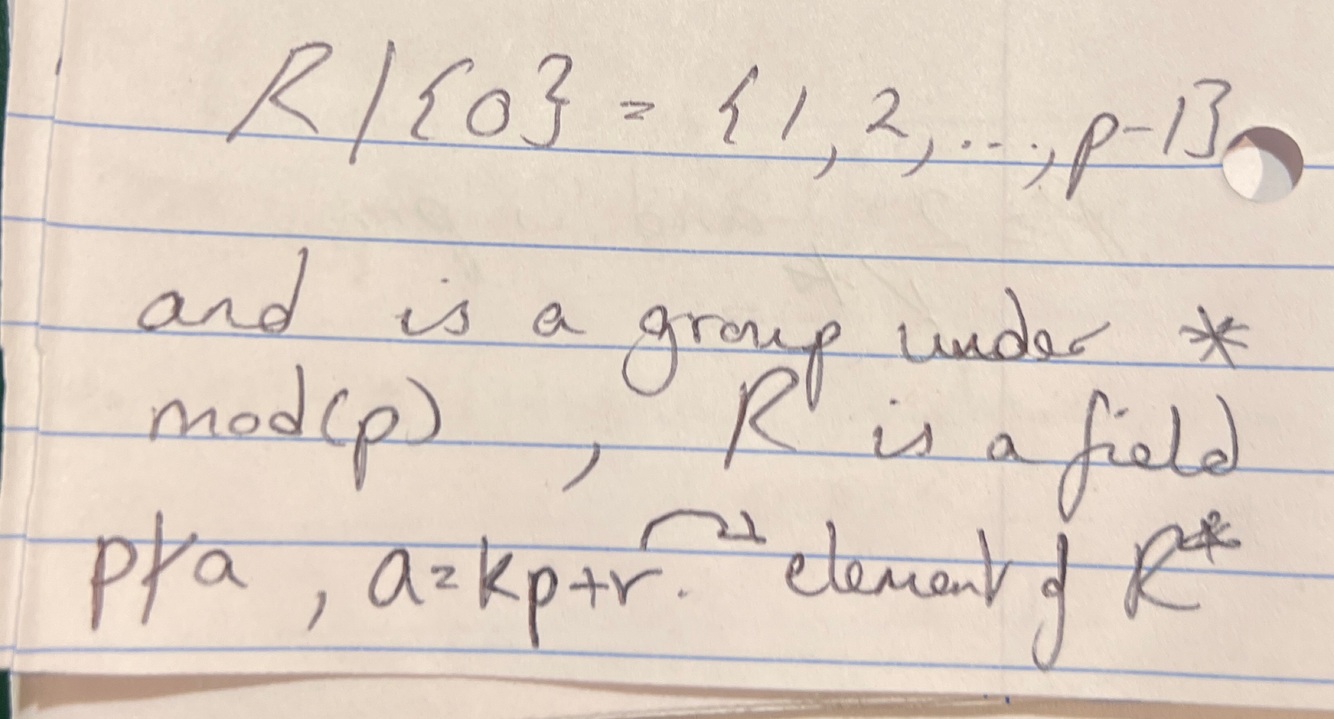 R/{0} = {1, 2, ..., p-1}
and is a group under *
mod(p) , R is a field
p∤a , a=kp+r. → element of R*